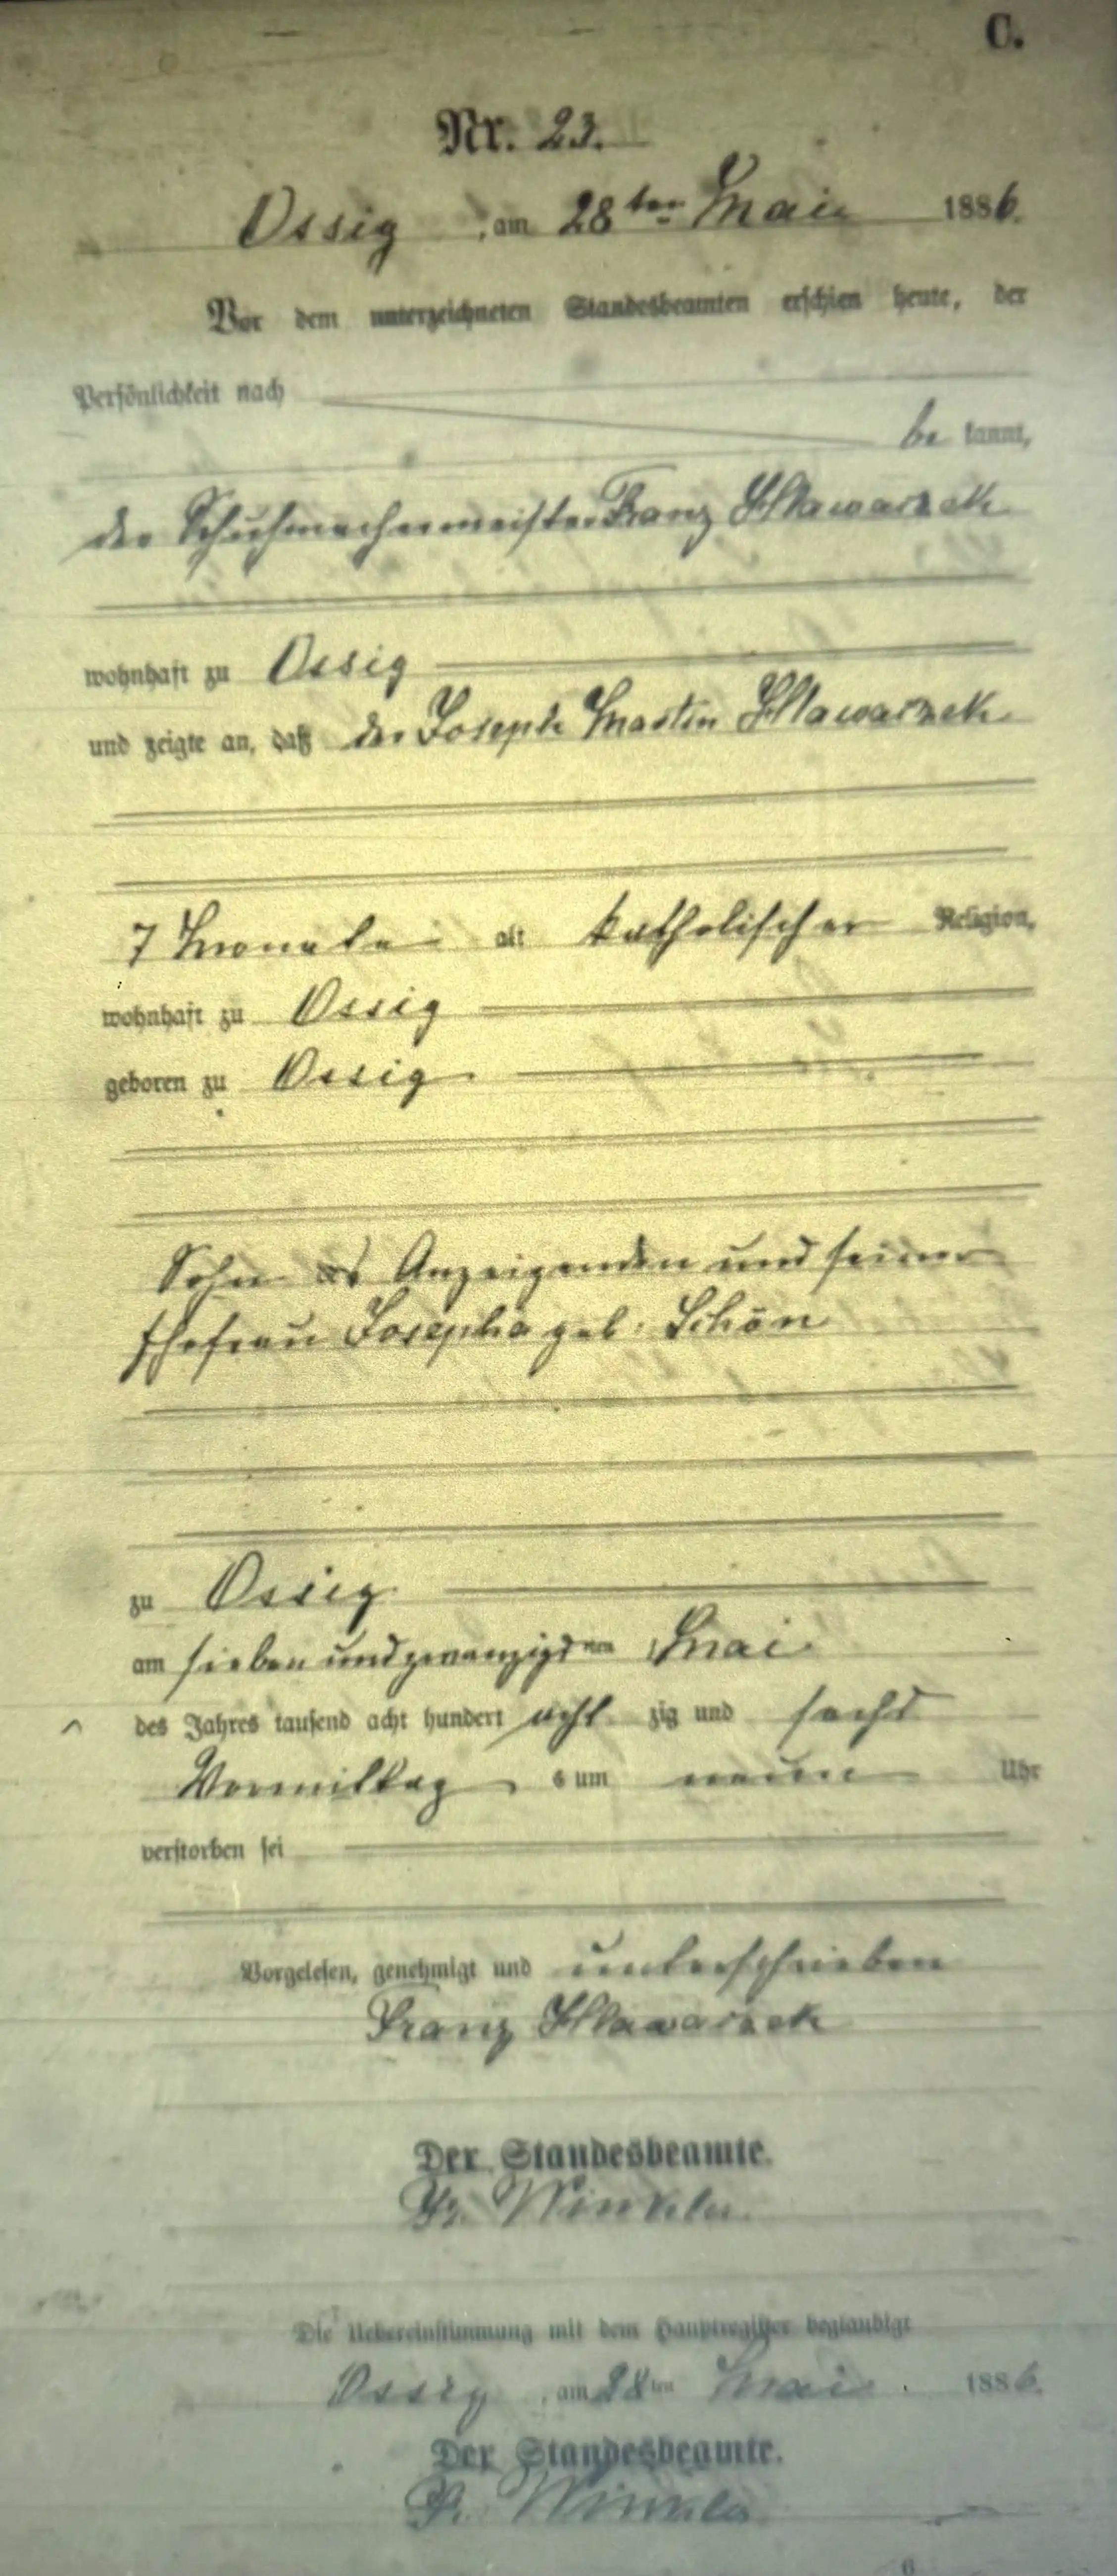 C.
Nr. 23.
Ossig, am 28ten Mai 1886.
Vor dem unterzeichneten Standesbeamten erschien heute, der
Persönlichkeit nach
be kannt,
der Schuhmachermeister Franz Hlawarzek
wohnhaft zu Ossig
und zeigte an, daß der Joseph Martin Hlawarzek
7 Monate alt katholischer Religion,
wohnhaft zu Ossig
geboren zu Ossig
Sohn des Anzeigenden und seiner
Ehefrau Josepha geb. Schön
zu Ossig
am siebenundzwanzigsten Mai
des Jahres tausend acht hundert acht zig und sechs
Vormittags um neun Uhr
verstorben sei
Vorgelesen, genehmigt und unterschrieben
Franz Hlawarzek
Der Standesbeamte.
Winkler
Die Uebereinstimmung mit dem Hauptregister beglaubigt
Ossig, am 28ten Mai 1886.
Der Standesbeamte.
Winkler
6